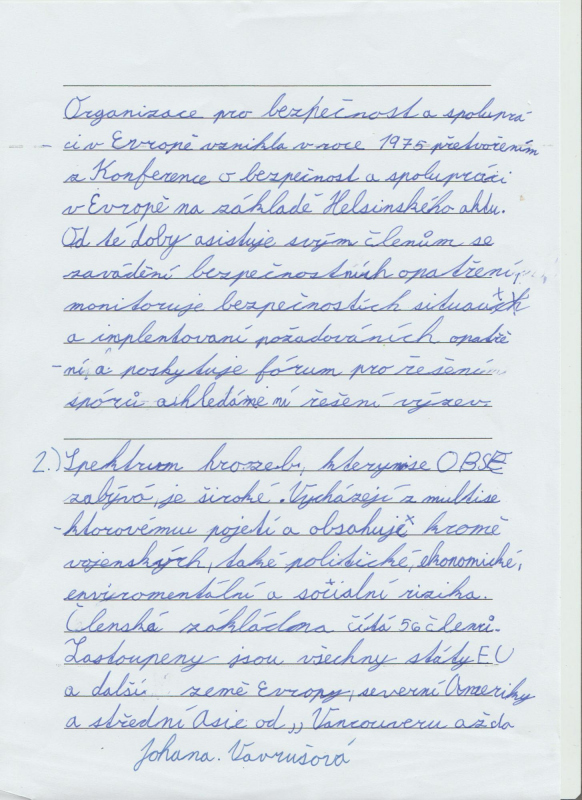 Organizace pro bezpečnost a spoluprá-
ci v Evropě vznikla v roce 1975 přetvořením
z Konference o bezpečnost a spolupráci
v Evropě na základě Helsinského aktu.
Od té doby asistuje svým členům se
zavádění bezpečnostních opatření,
monitoruje bezpečnostích situaci
a implentovaní požadováních opatře
-ní, a poskytuje fórum pro řešení
spórů a hledáme ní řešení výzev.
2.) Spektrum hrozeb, kterými se OBSE
zabývá, je široké. Vycházejí z multise
-ktorovému pojetí a obsahuje kromě
vojenských, také politické, ekonomické,
enviromentální a sočialní rizika.
Členská zákládna čítá 56 členů.
Zastoupeny jsou všechny státy EU
a další země Evropy, severní Ameriky
a střední Asie od ,, Vancouveru až do
Johana. Vavrušová